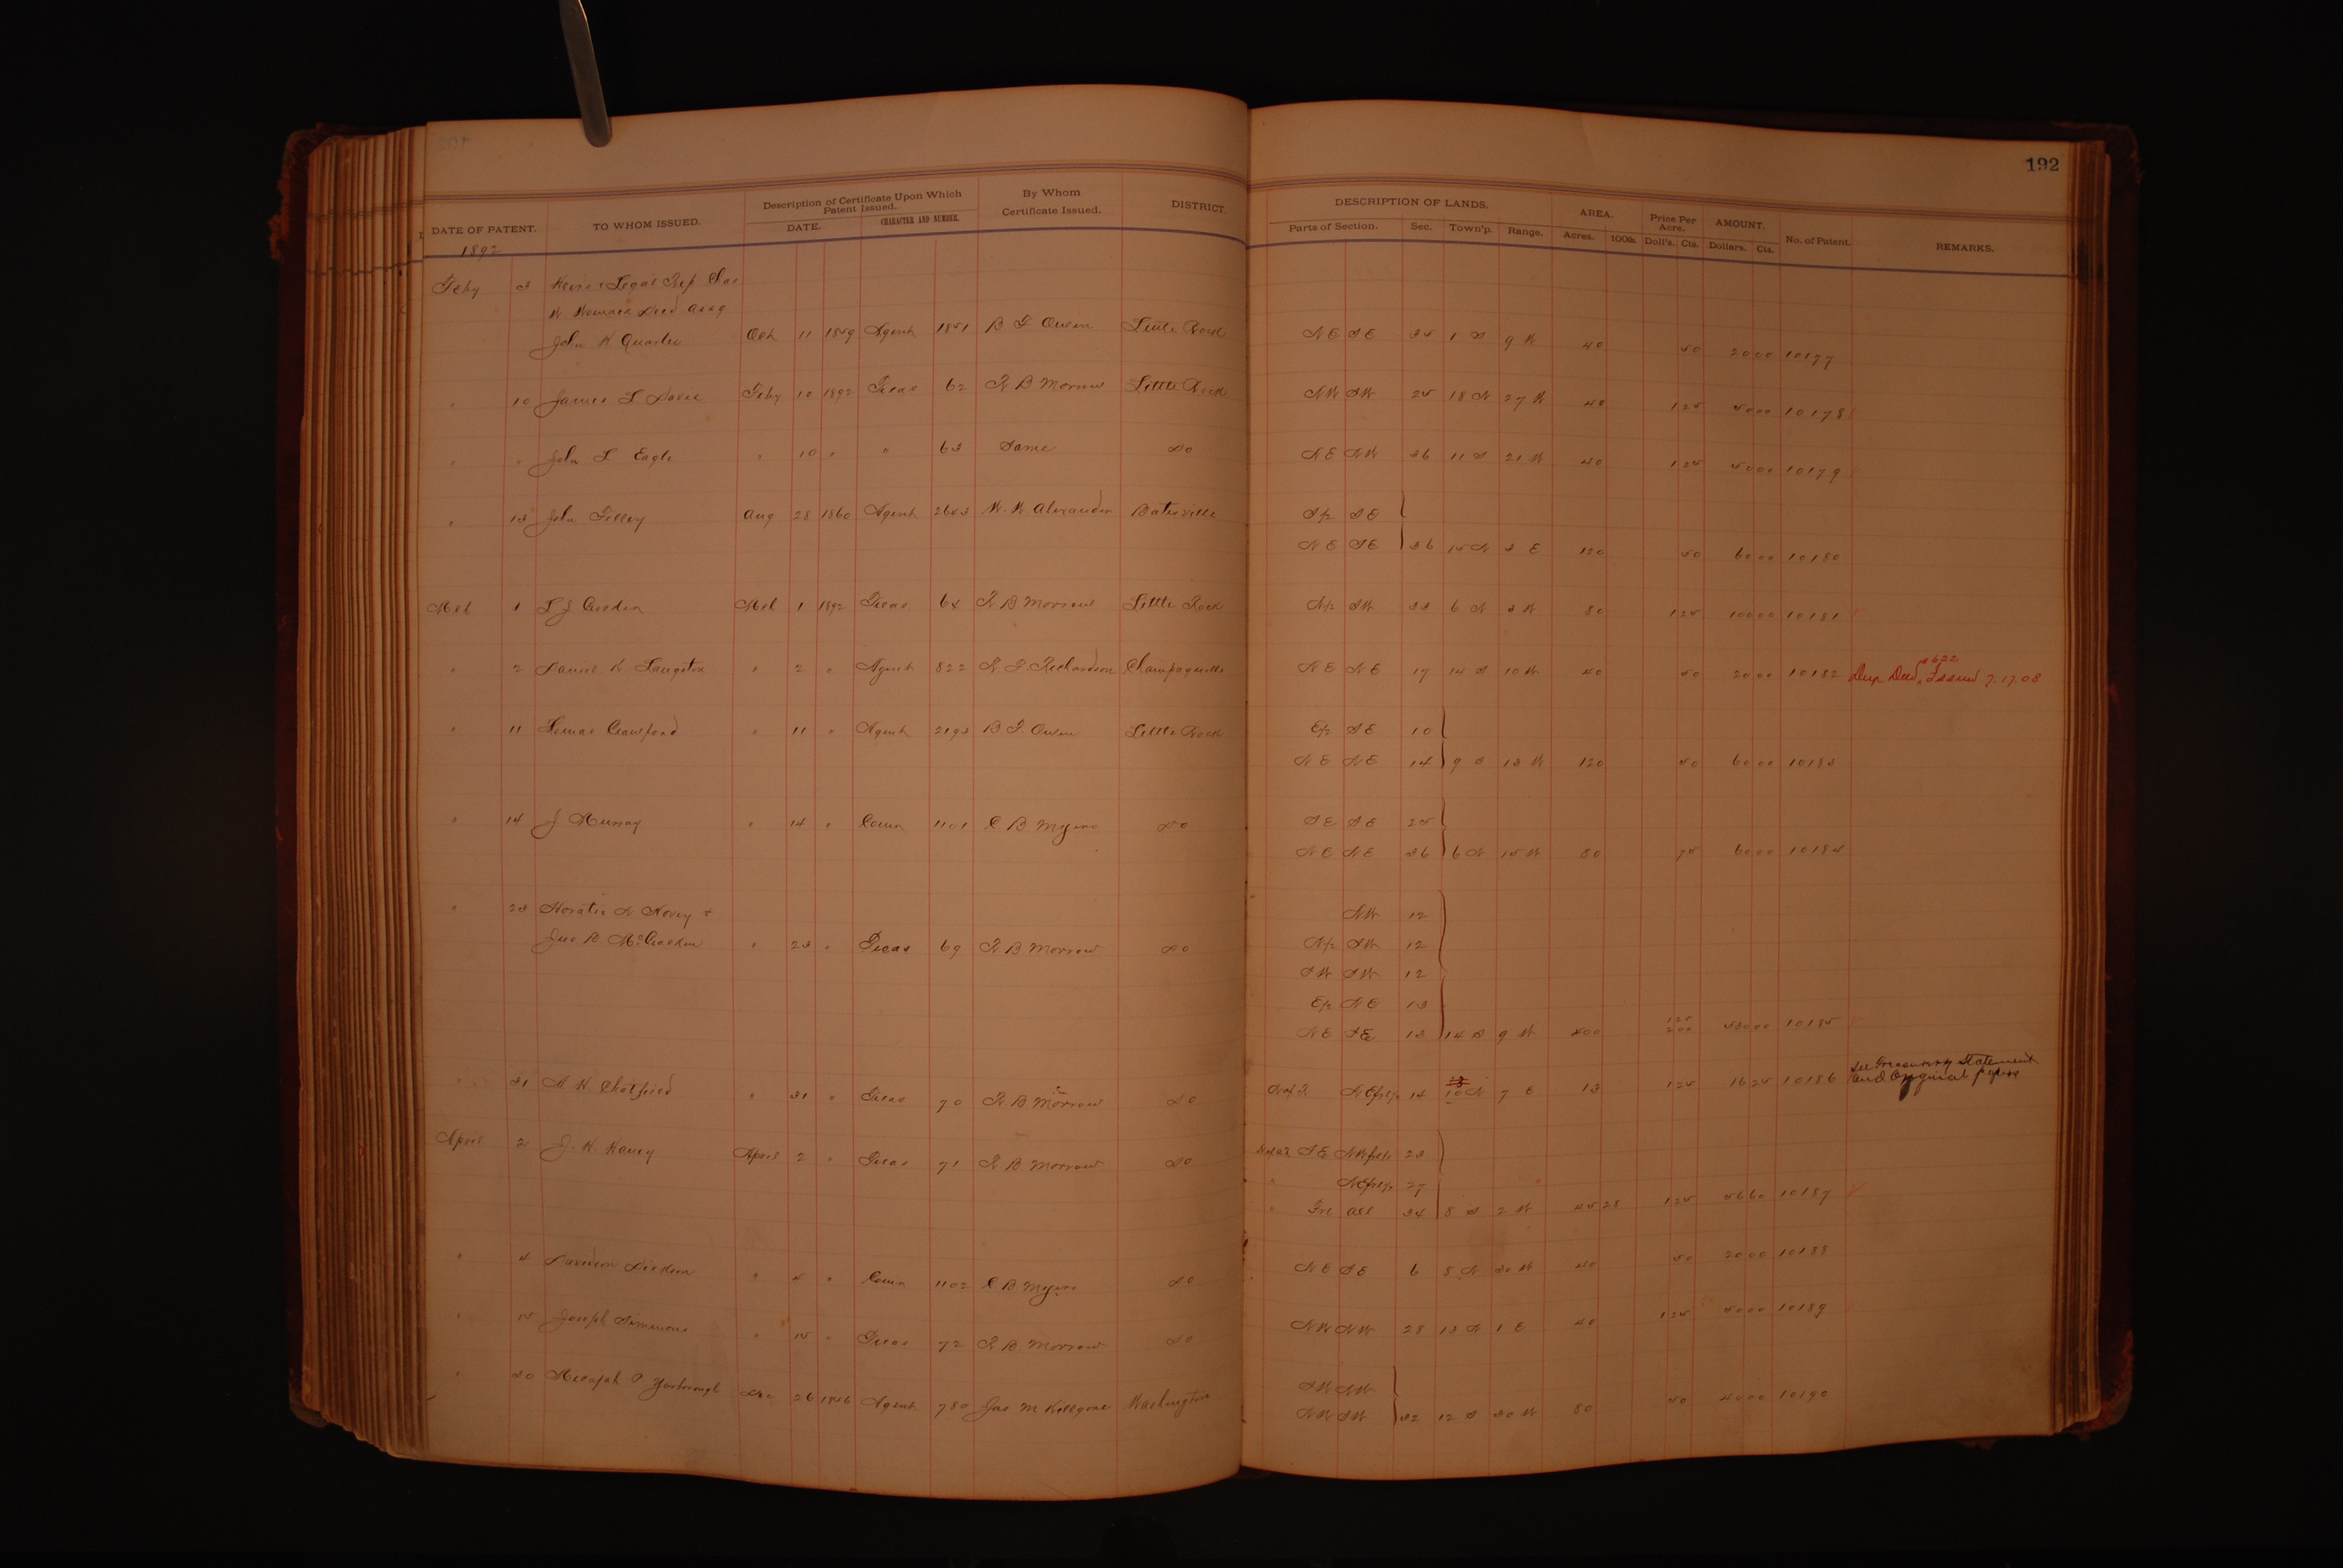 192
DATE OF PATENT. TO WHOM ISSUED. Description of Certificate Upon Which Patent Issued. DATE. CHARACTER AND NUMBER. By Whom Certificate Issued. DISTRICT. DESCRIPTION OF LANDS. Parts of Section. Sec. Town'p. Range. AREA. Acres. 100ths. Price Per Acre. Doll's. Cts. AMOUNT. Dollars. Cts. No. of Patent. REMARKS.
1892
Feby 3 Heirs & Legal Rep
John Quarles Oct 11 1859 Agent 1851 B F Owen Little Rock NE SE 35 1 S 9 W 40 50 20 00 10177
" 10 James L Davis Feby 10 1892 Treas 62 R B Morrow Little Rock NW SW 25 18 N 27 W 40 1 25 50 00 10178
" " John L Eagle " 10 " " 63 Same Do NE NW 36 11 S 21 W 40 1 25 50 00 10179
" 13 John Aug 28 1860 Agent 2643 W. W. Alexander Batesville S/2 SE
NE SE 36 15 N 3 E 120 50 60 00 10180
Mch 1 L J Mch 1 1892 Treas 64 R B Morrow Little Rock N/2 SW 33 6 N 3 W 80 1 25 100 00 10181
" 2 Daniel Langston " 2 " Agent 822 Richardson Champagnolle NE NE 17 14 S 10 W 40 50 20 00 10182 Dup Deed Issued 7.17.08
" 11 Thomas Crawford " 11 " Agent 2193 B F. Owen Little Rock E/2 SE 10
NE NE 14 9 S 13 W 120 50 60 00 10183
" 14 J Murray " 14 " Comr 1101 C B Myers Do SE SE 25
NE NE 36 6 N 15 W 80 75 60 00 10184
" 23 Horatio N Hovey & NW 12
Jno. B McCracken " 23 " Treas 69 R B Morrow Do N/2 SW 12
SW SW 12
E/2 NE 13
NE SE 13 14 S 9 W 400 1 25 2 00 530 00 10185
" 31 Chatfield " 31 " Treas 70 R B Morrow Do 14 10 N 7 E 13 1 25 16 25 10186 See Treasurers Statement and Original papers
April 2 April 2 " Treas 71 R B Morrow Do SE 23
" 27
" 34 8 S 2 W 45 28 1 25 56 60 10187
" 4 " 4 " Comr 1102 C B Myers Do NE SE 6 8 N 30 W 40 50 20 00 10188
" 15 Joseph Simmons " 15 " Treas 72 R B. Morrow Do NW NW 28 13 N 1 E 40 1 25 50 00 10189
" 30 Micajah P Yarborough Dec 26 1846 Agent 780 Jas M Kilgore Washington SW NW
NW SW 32 12 S 30 W 80 50 40 00 10190